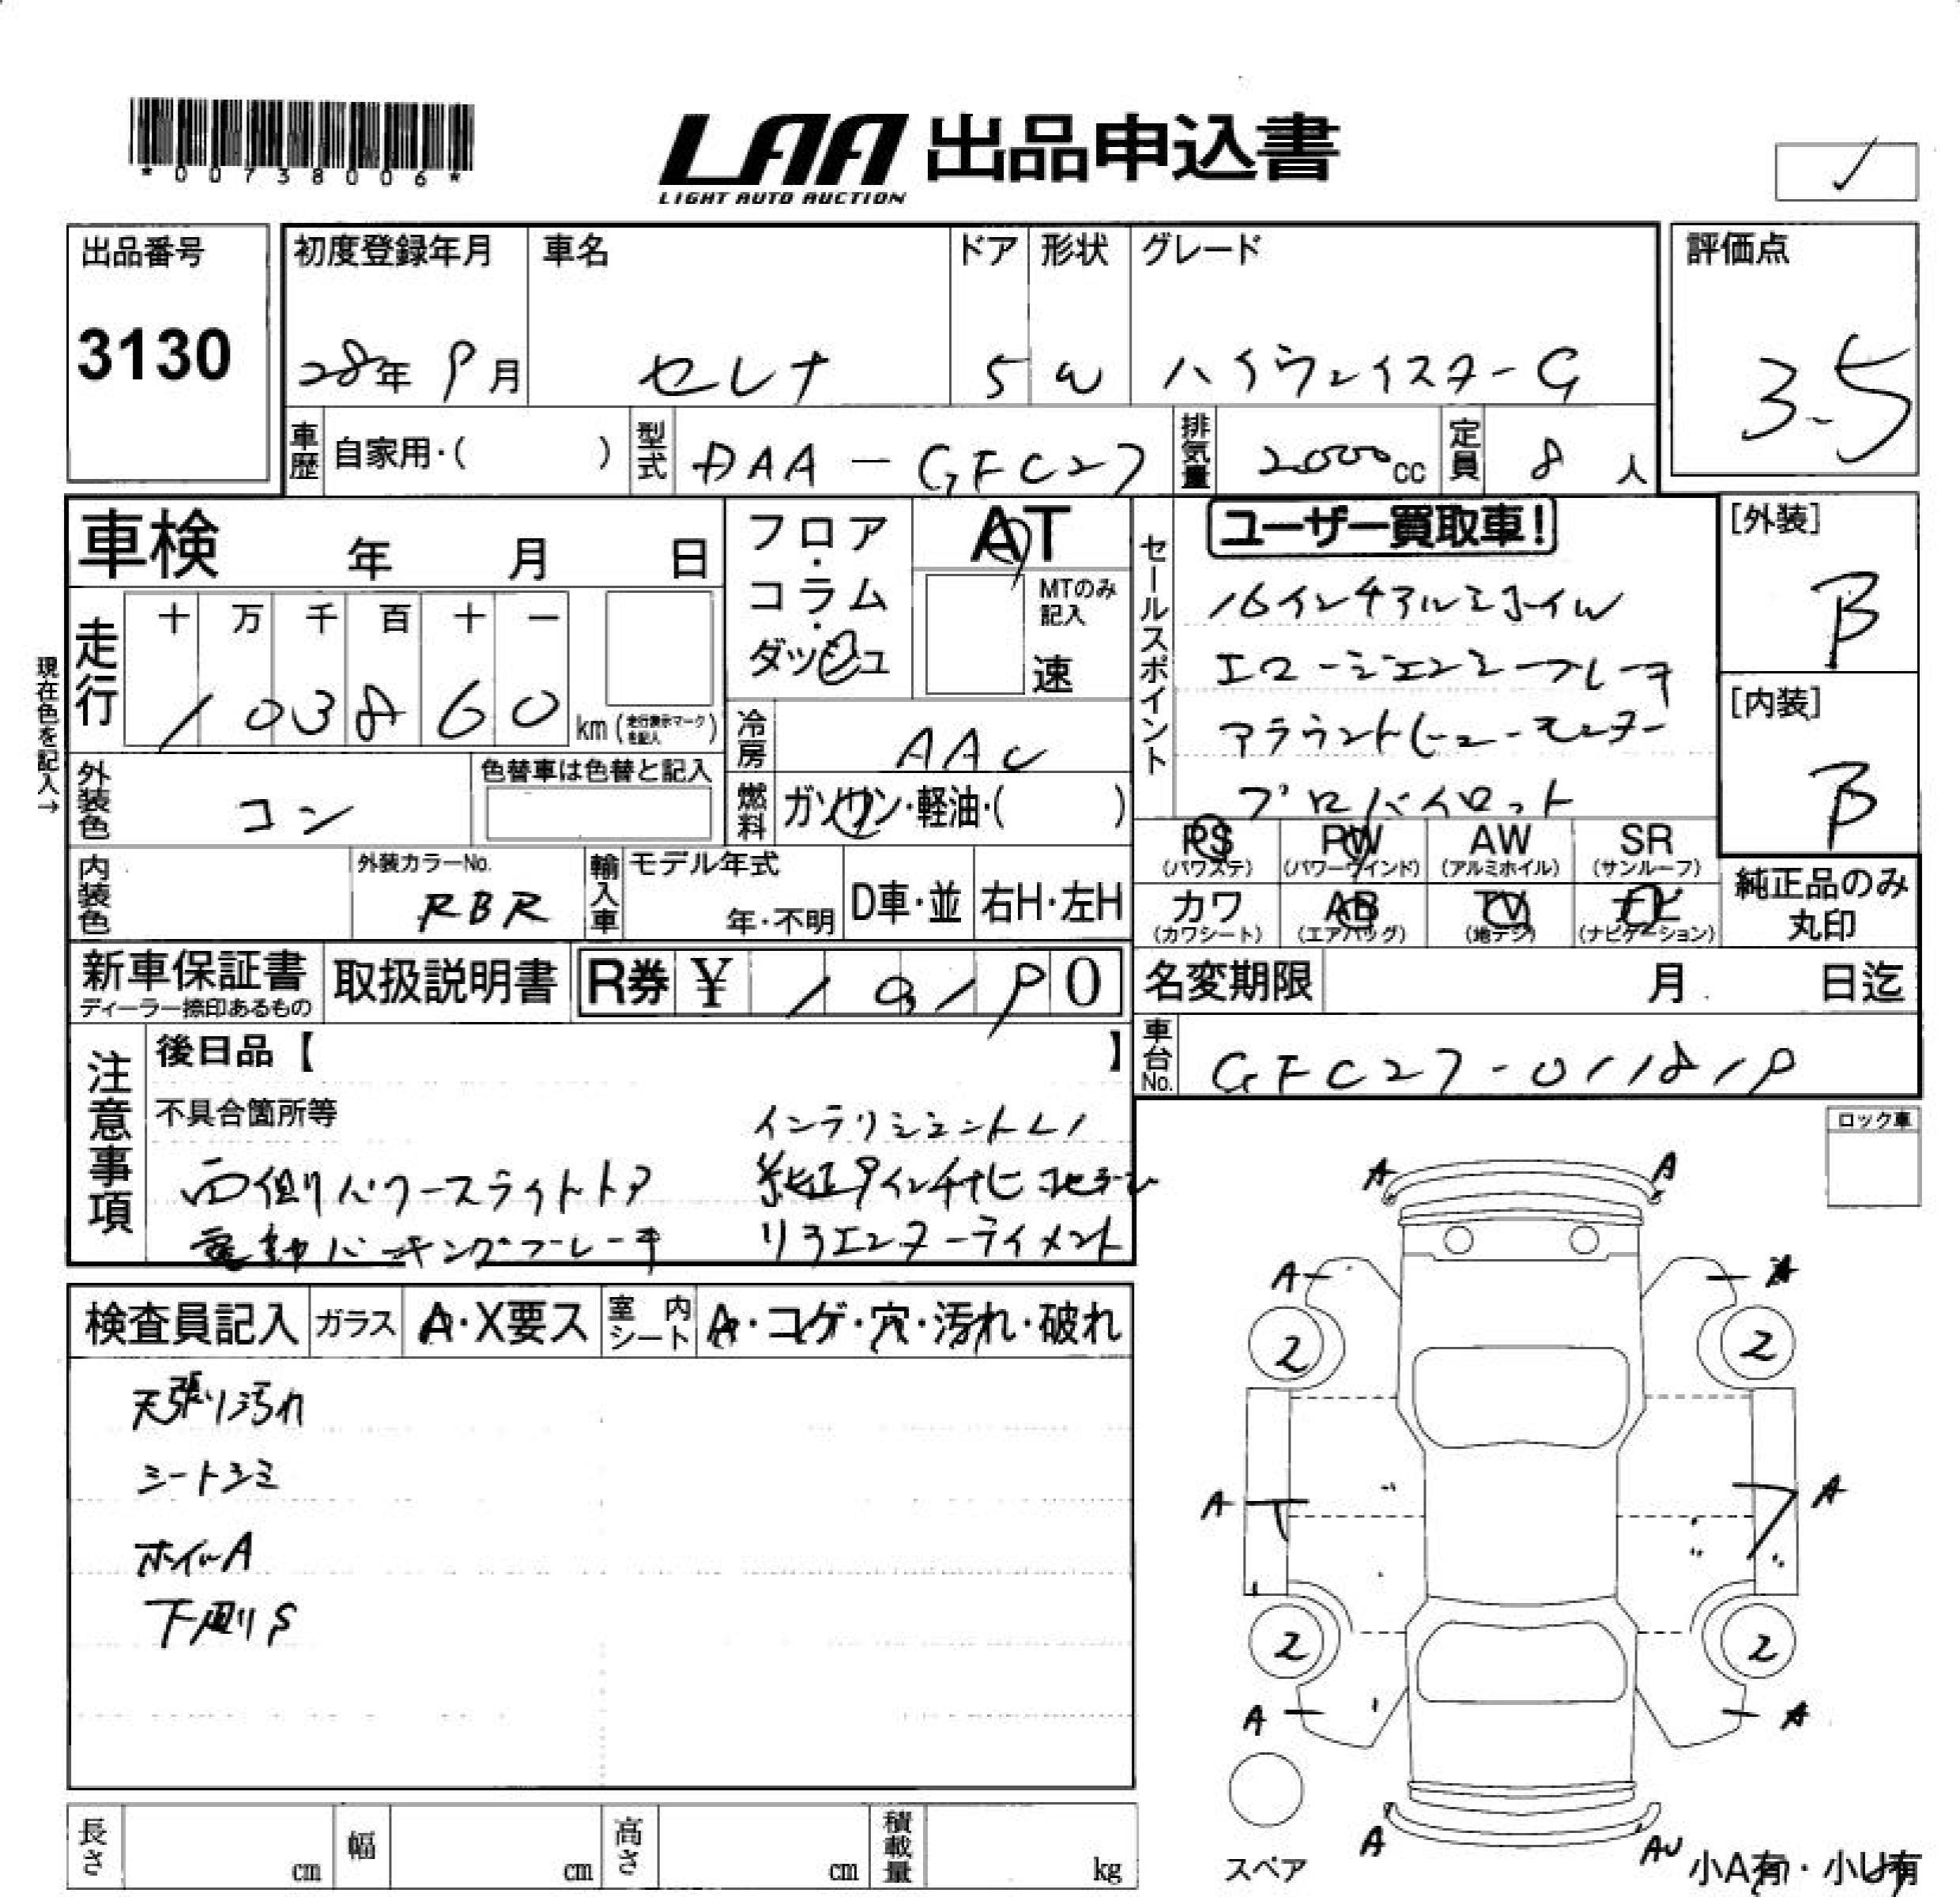 *00738006*
LAA 出品申込書
LIGHT AUTO AUCTION
出品番号
3130
初度登録年月
28年 9月
車名
セレナ
ドア
5
形状
W
グレード
ハイウェイスターG
評価点
3.5
車歴
自家用・( )
型式
DAA-GFC27
排気量
2000cc
定員
8人
車検 年 月 日
現在色を記入→
走行
十 万 千 百 十 一
1 0 3 8 6 0
km (走行表示マークを記入)
フロア・コラム・ダッシュ
AT
MTのみ記入
速
冷房
AAC
燃料
ガソリン・軽油・( )
外装色
コン
色替車は色替と記入
内装色
外装カラーNo.
RBR
輸入車
モデル年式
年・不明
D車・並
右H・左H
セールスポイント
ユーザー買取車!
16インチアルミホイル
エマージェンシーブレーキ
アラウンドビューモニター
プロパイロット
[外装]
B
[内装]
B
PS
(パワステ)
PW
(パワーウインド)
AW
(アルミホイル)
SR
(サンルーフ)
カワ
(カワシート)
AB
(エアバッグ)
TV
(地デジ)
ナビ
(ナビゲーション)
純正品のみ丸印
新車保証書
ディーラー捺印あるもの
取扱説明書
R券 ¥
0
名変期限 月 日迄
車台No.
GFC27-011819
注意事項
後日品【 】
不具合箇所等
両側パワースライドドア
電動パーキングブレーキ
純正9インチナビ 地デジ
リヤエンターテイメント
ロック車
検査員記入
ガラス
A・X要ス
室内シート
A・コゲ・穴・汚れ・破れ
天張り汚れ
シートシミ
ホイルA
下廻りS
A
A
A
A
2
2
A
A
2
2
A
A
A
AU
スペア
小A有・小U有
長さ cm
幅 cm
高さ cm
積載量 kg